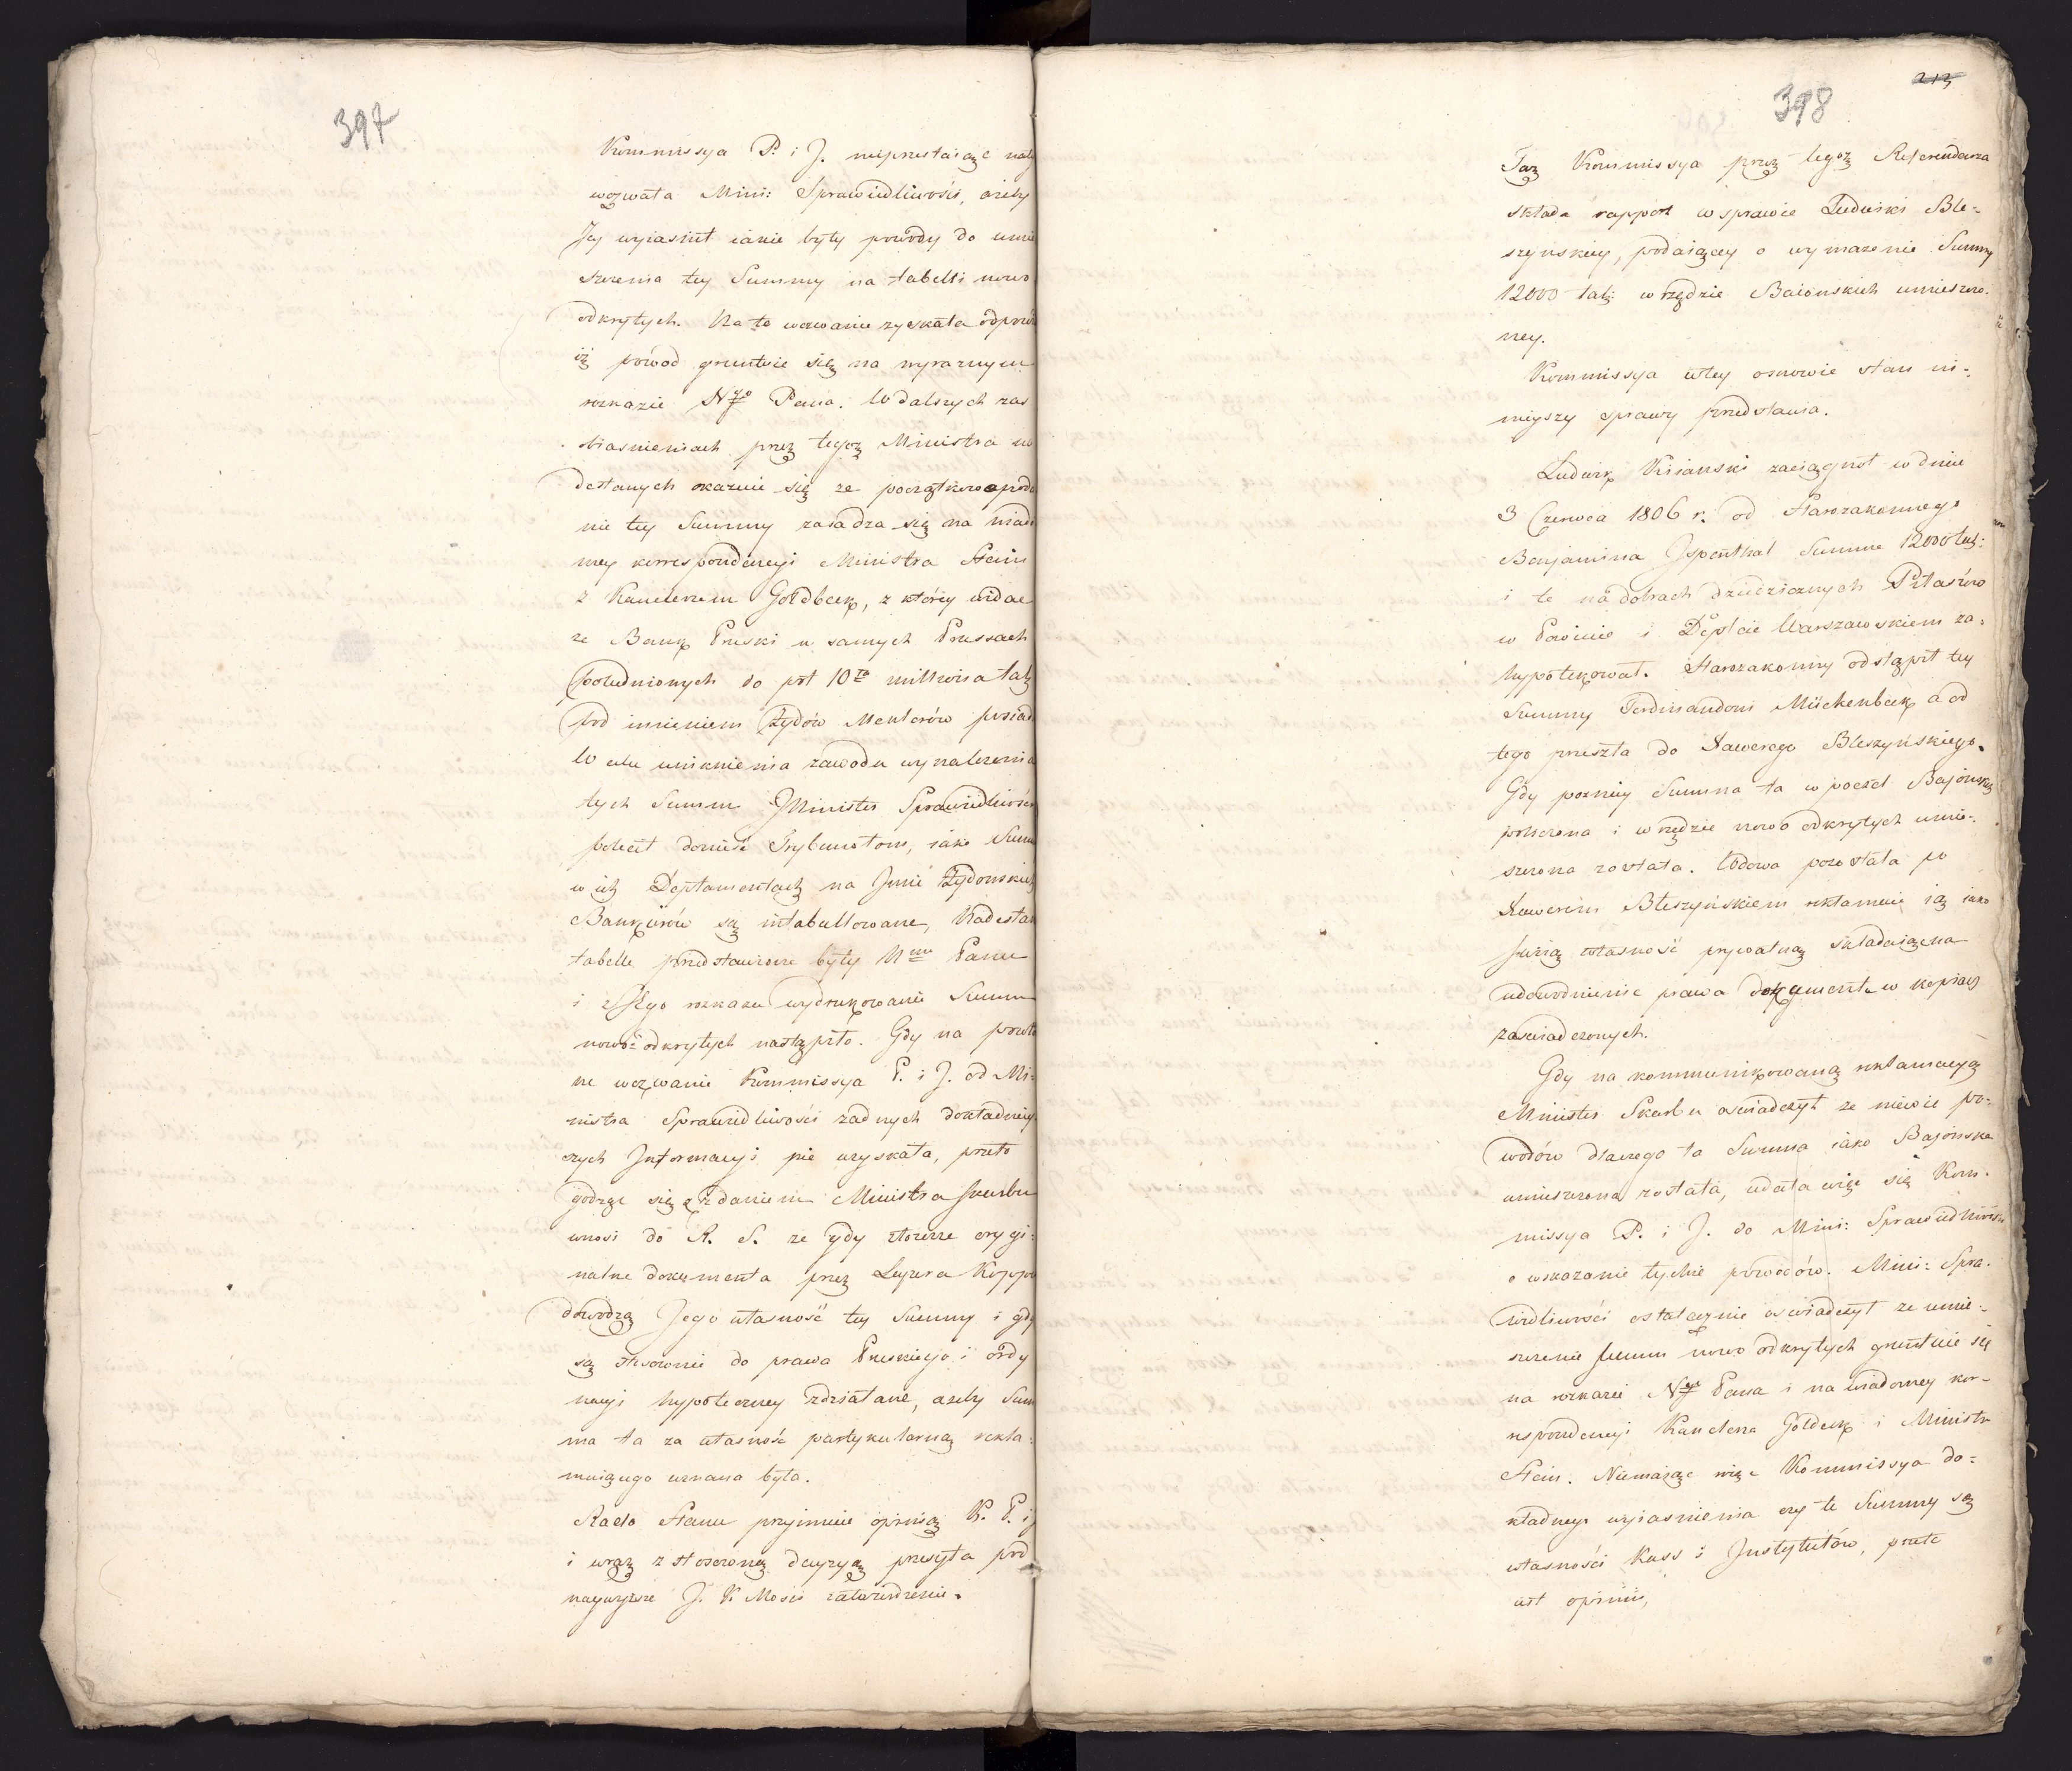 397
Kommissya P. i J. nieprzestaiąc na
wezwała Mini: Sprawiedliwości, ażeby
Jey wyiaśnił iakie były powody do umie
szczenia tey Summy na tabelli nowo
odkrytych. Na to wezwanie zyskała odpowi
iż powód gruntuie się na wyraznym
rozkazie N<sup>go</sup> Pana. W dalszych zaś
obiaśnieniach przez tegoż Ministra na
desłanych okazuie się że początkowe poda
nie tey Summy zasadza się na wiado
mey korrespondencyi Ministra Stein
z Kanclerzem Goldbeck, z którey widać
że Bank Pruski w samych Prussach
Południowych do pół 10<sup>ta</sup> milliona tal
pod imieniem Żydów Meklerów posiad
W celu uniknienia zawodu wynalezienia
tych Summ Minister Sprawiedliwości
polecił donieść Trybunałom, iakie Summ
w ich Deptamentach na Jmie Żydowskich
Bankierów są intabullowane, Nadesłan
tabelle przedstawione były N<sup>mu</sup> Panu
i z Jego rozkazu wydrukowanie Summ
nowo odkrytych nastąpiło. Gdy na powto
ne wezwanie Kommissya P. i J. od Mi=
nistra Sprawiedliwości żadnych dokładniey
szych Jnformacyi nie uzyskała, przeto
godząc się z zdaniem Ministra Skarbu
wnosi do R. S. że gdy złożone orygi=
nalne dokumenta przez Lazera
dowodzą Jego własność tey Summy i gdy
są stosownie do prawa Pruskiego i ordy
nacyi hypoteczney zdziałane, ażeby Sum
ma ta za własność partykularną rekla=
muiącego uznana była.
Rada Stanu przyimuie opinią K. P. i J
i wraz z stosowną decyzyą przesyła pod
naywyższe J. K. Mości zatwierdzenie.
213
398
Taż Kommissya przez tegoż Referendarza
składa rapport w sprawie Ludwiki Ble=
szyńskiey, podaiącey o wymazanie Summy
12000 tal: w rzędzie Baiońskich umieszczo=
ney.
Kommissya w tey osnowie stan ni=
nieyszy sprawy przedstawia.
Ludwik Kisiański zaciągnoł w dniu
3 Czerwca 1806 r. od Starozakonnego
Benjamina Jspenthal Summe 12000 tal:
i te na dobrach dziedzicznych
w Powiecie i Deptcie Warszawskiem za=
hypotekował. Starozakonny odstąpił tey
Summy Ferdinandowi Mückenbeck a od
tego przeszła do Xawerego Bleszyńskiego.
Gdy pozniey Summa ta w poczet Bajońskich
policzona i w rzędzie nowo odkrytych umie=
szczona została. Wdowa pozostała po
Xawerim Bleszyńskiem reklamuie ią iako
swoią własność prywatną składaiąc na
udowodnienie prawa dokumenta w kopiach
zaświadczonych.
Gdy na kommunikowaną reklamacyą
Minister Skarbu oświadczył że niewie po=
wodów dlaczego ta Summa iako Bajońska
umieszczona została, udała więc się Kom=
missya P. i J. do Mini: Sprawiedliwości
o wskazanie tychże powodów. Mini: Spra=
wiedliwości ostatecznie oświadczył że umie=
szczenie Summ nowo odkrytych gruntuie się
na rozkazie N<sup>go</sup> Pana i na wiadomey kor=
respondencyi Kanclerza Goldeck i Ministr
Stein. Niemaiąc więc Kommissya do=
kładnego wyiaśnienia czy te Summy są
własności Kass i Jnstytutów, przeto
iest opinii,